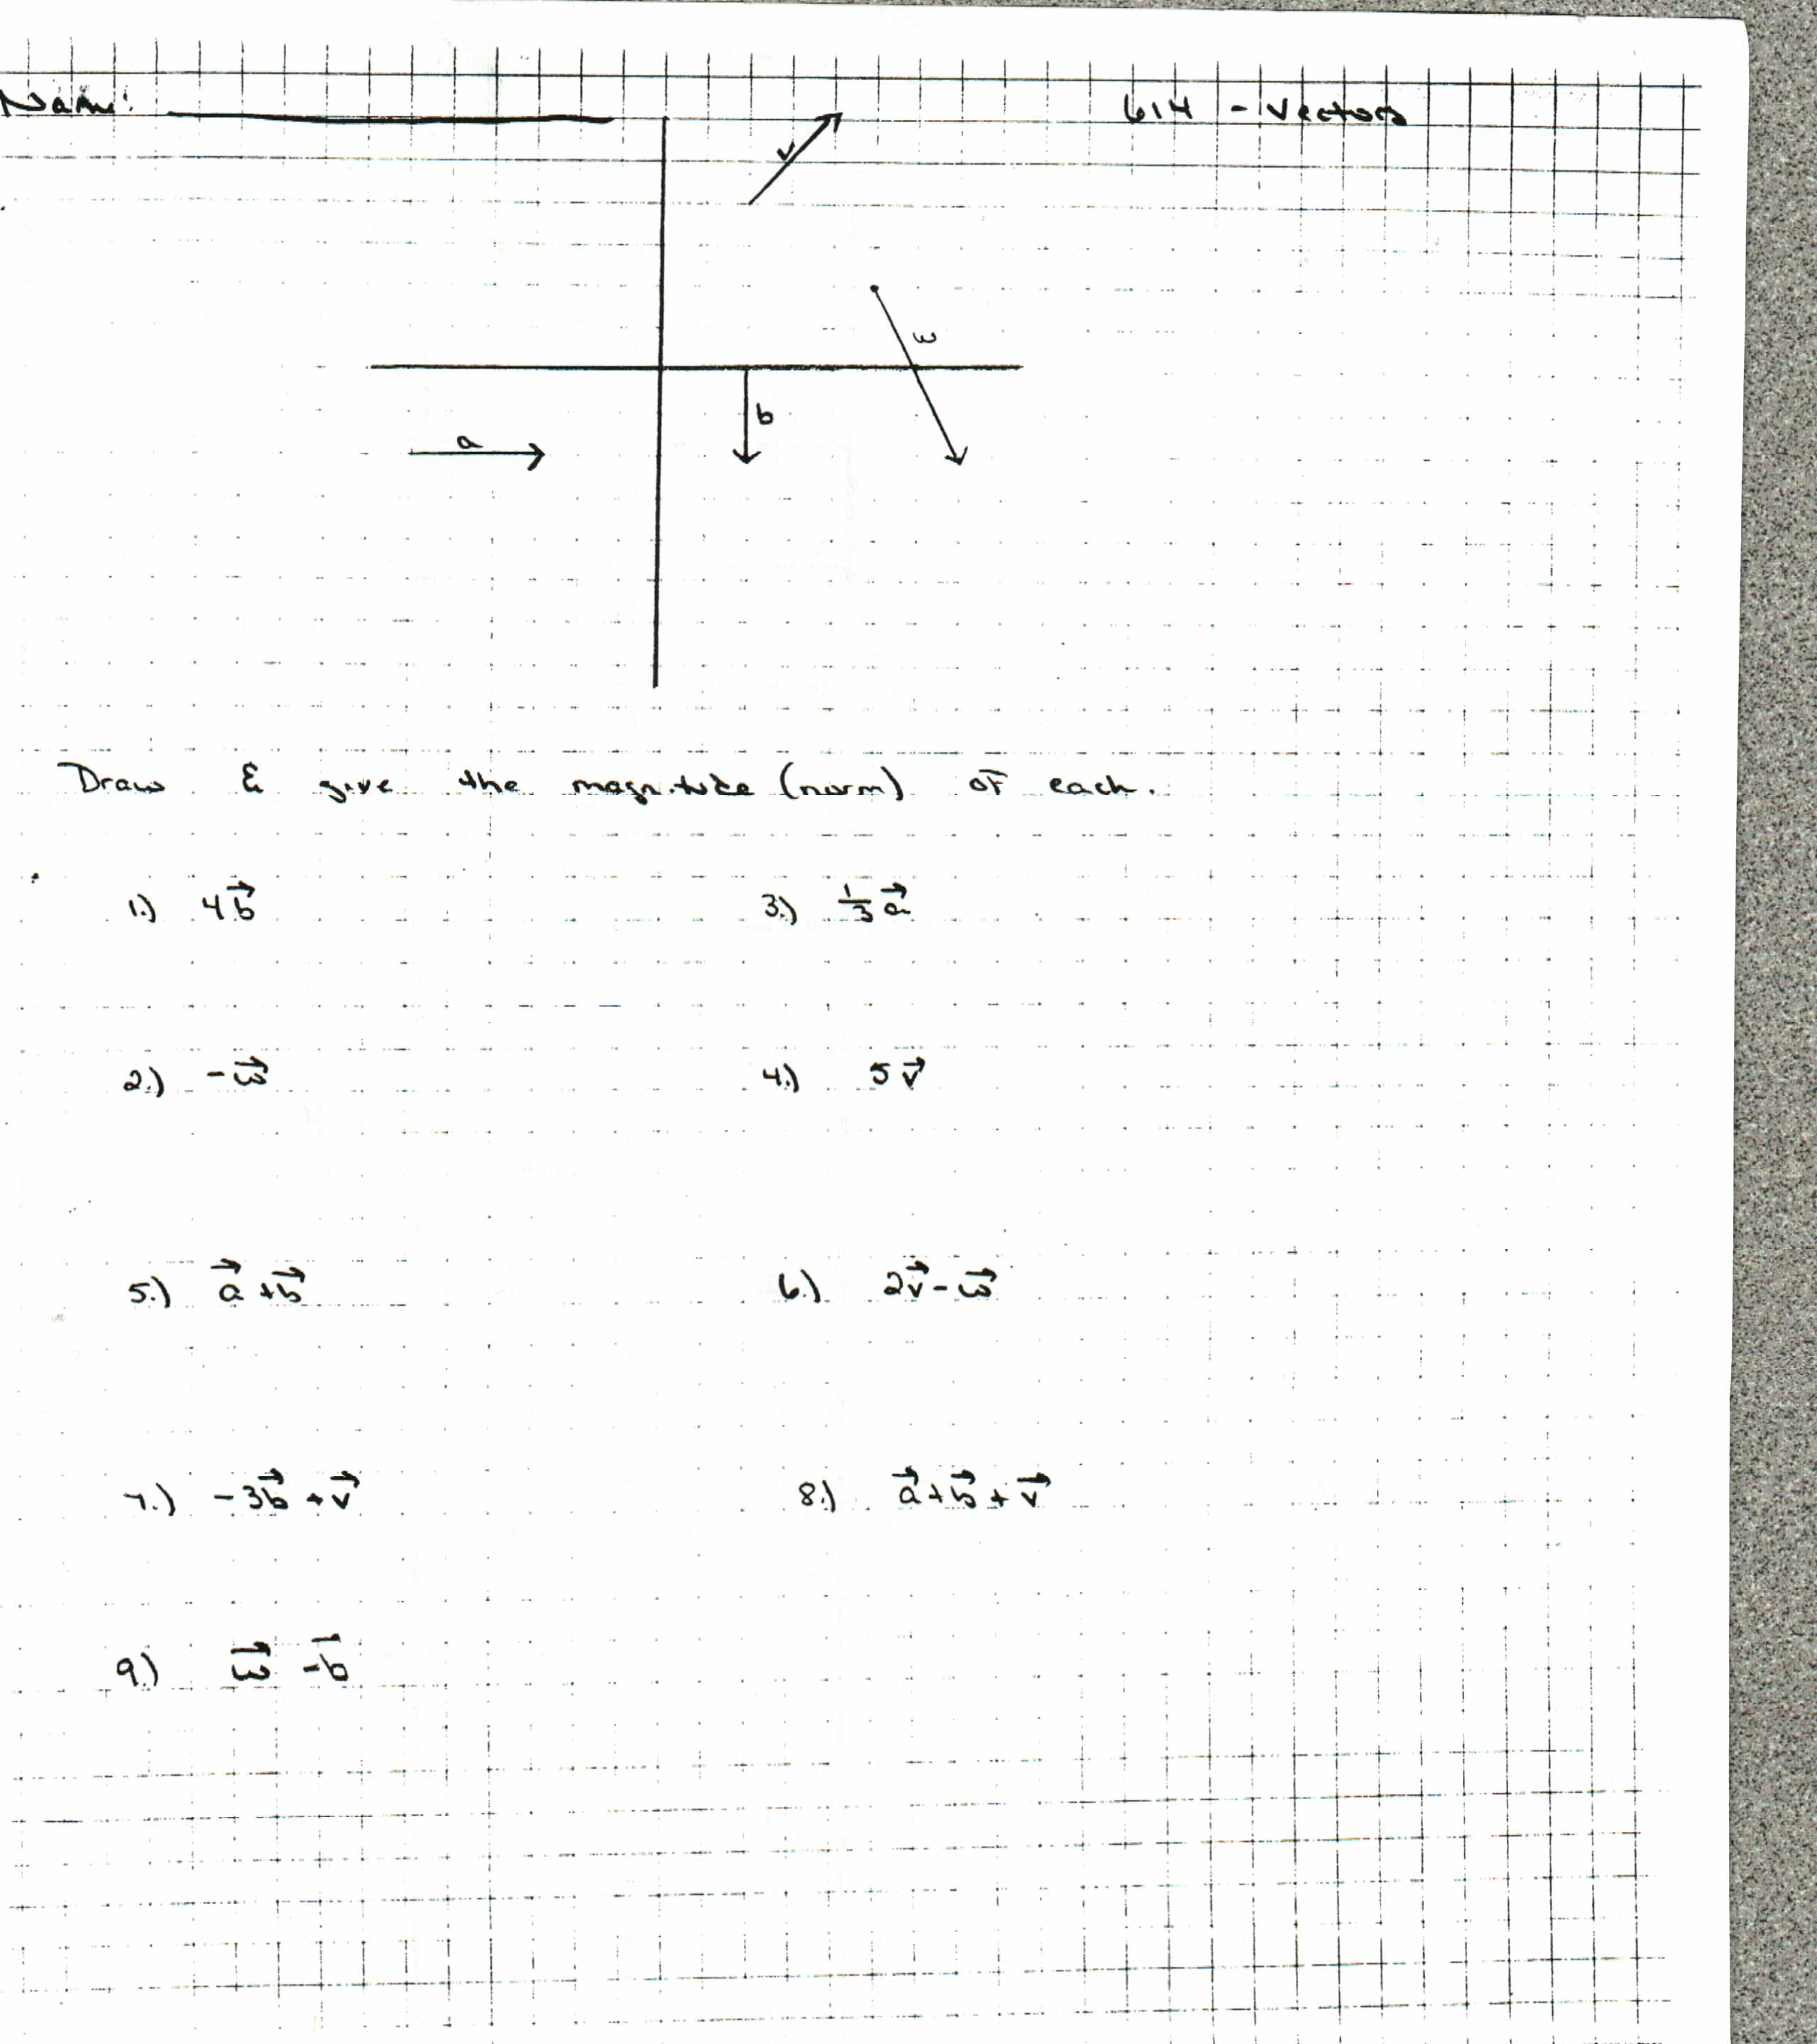 Name: 6.4 - Vectors
v
w
b
a
Draw & give the magnitude (norm) of each.
1.) 4b⃗ 3.) 1/3 a⃗
2.) -w⃗ 4.) 5v⃗
5.) a⃗ + b⃗ 6.) 2v⃗ - w⃗
7.) -3b⃗ + v⃗ 8.) a⃗ + b⃗ + v⃗
9.) w⃗ - b⃗